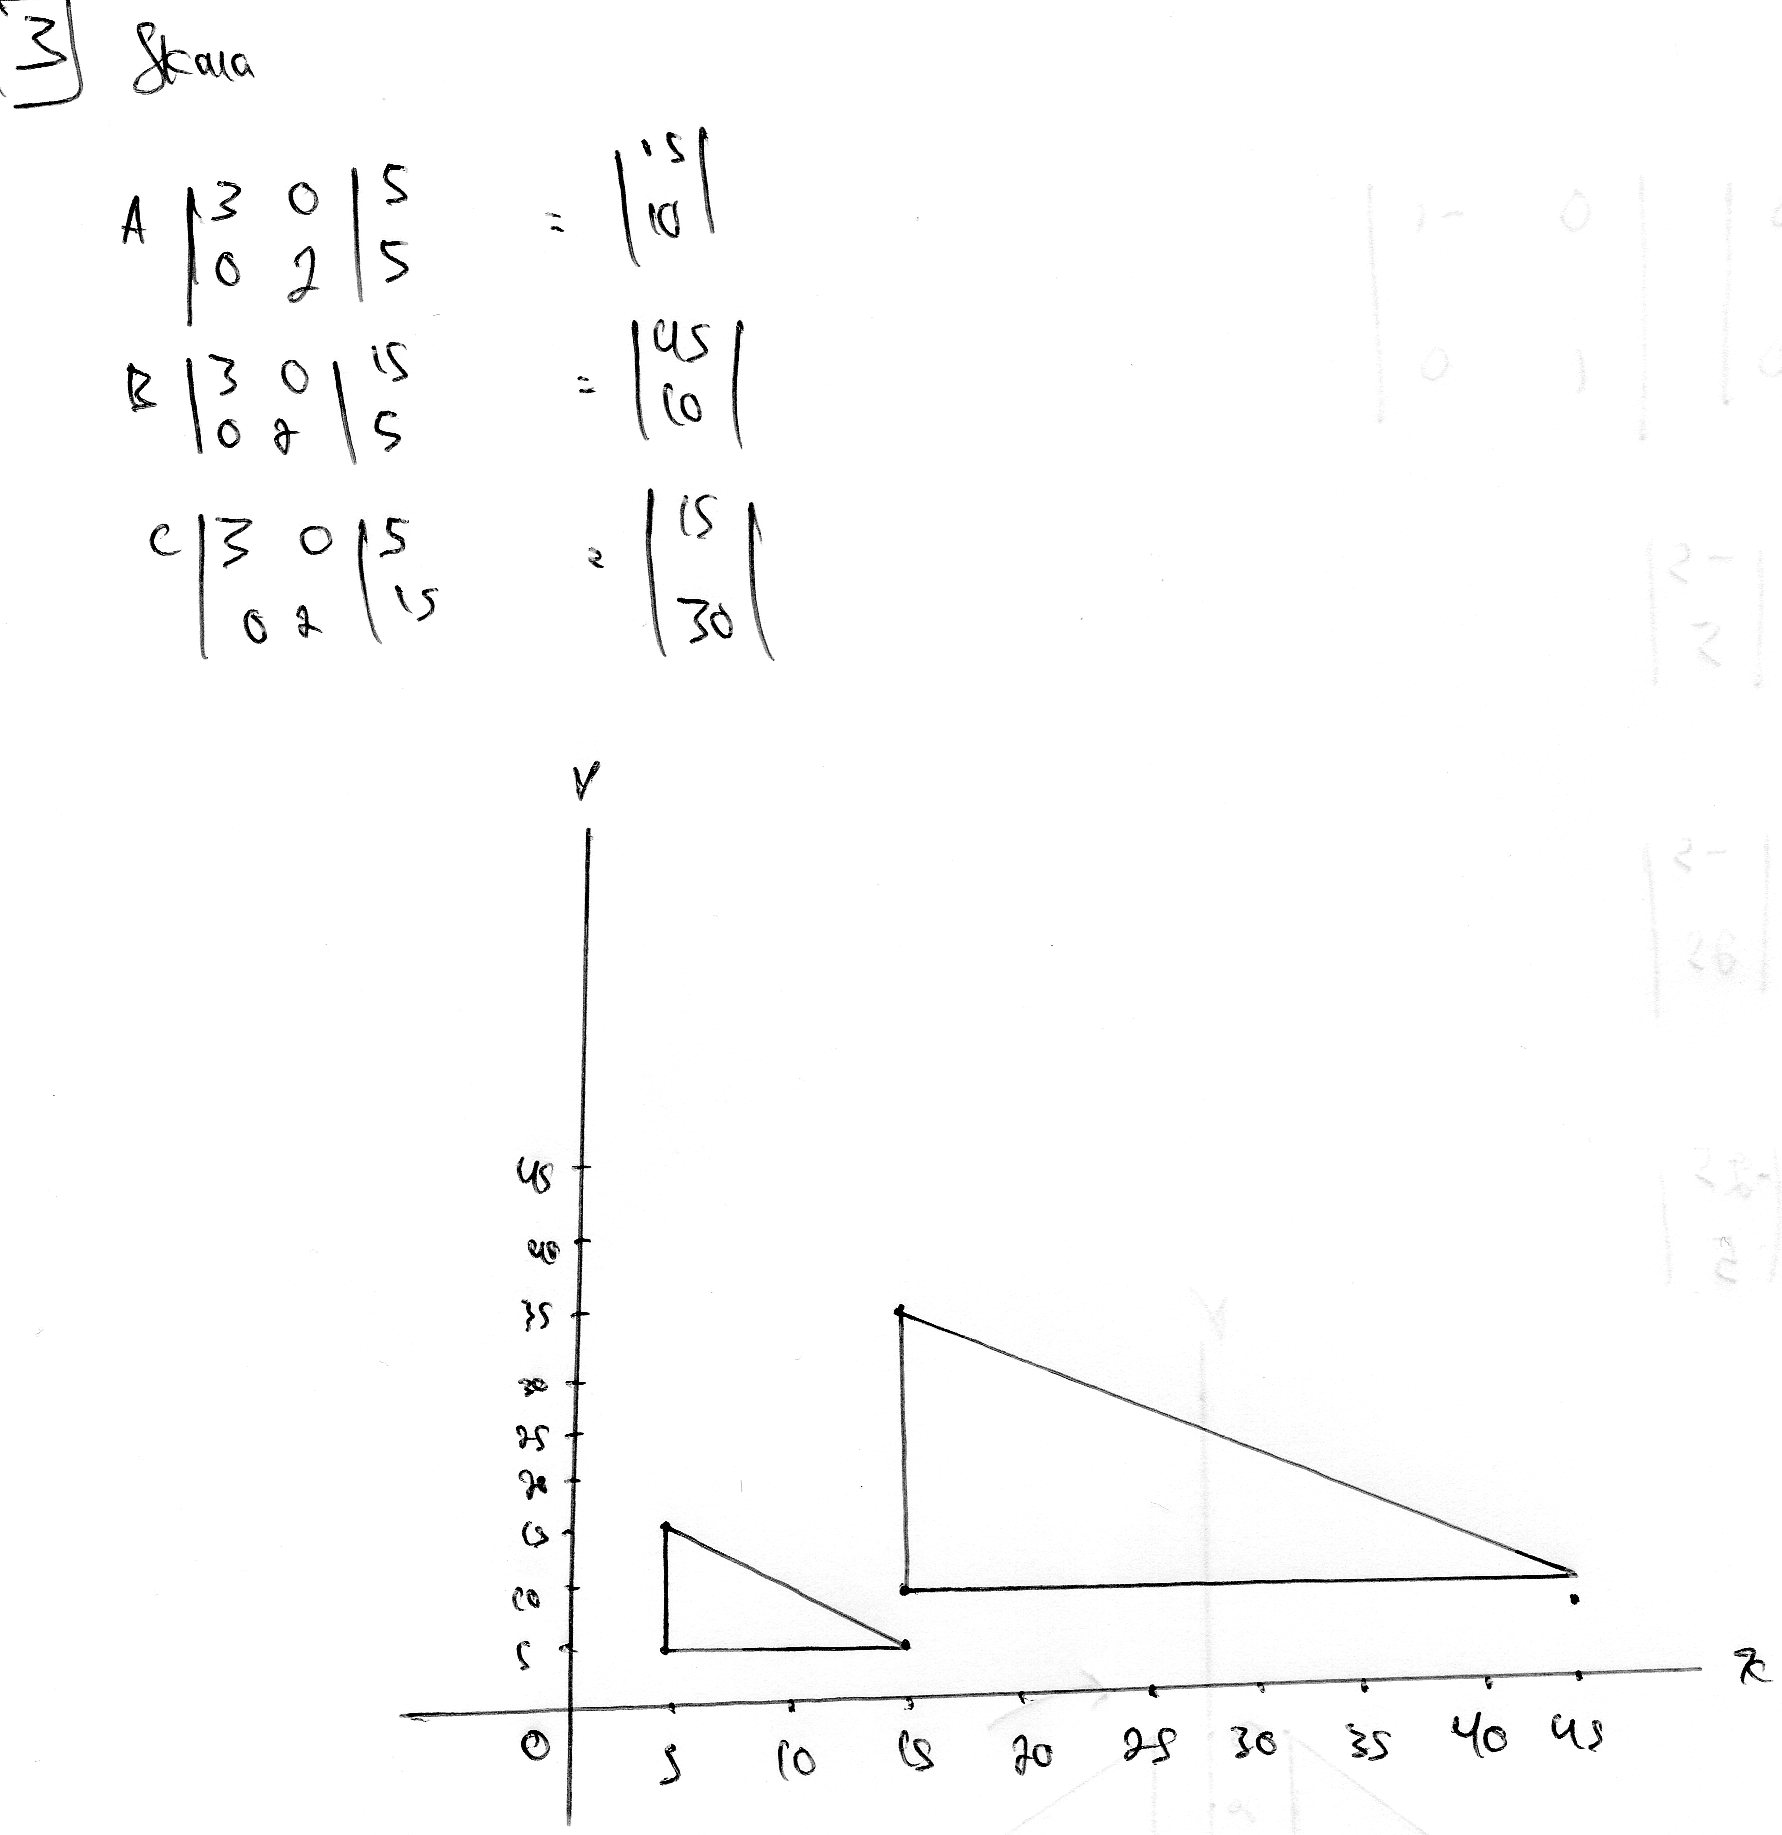 3 Skala
A | 3 0 | 5 = | 15 |
| 0 2 | 5 | 10 |
B | 3 0 | 15 = | 45 |
| 0 2 | 5 | 10 |
C | 3 0 | 5 = | 15 |
| 0 2 | 15 | 30 |
Y
45
40
35
30
25
20
15
10
5
x
0 5 10 15 20 25 30 35 40 45